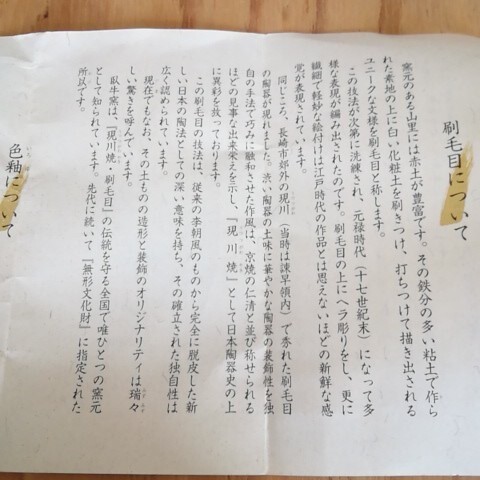 刷毛目について
窯元のある山里には赤土が豊富です。その鉄分の多い粘土で作ら
れた素地の上に白い化粧土を刷きつけ、打ちつけて描き出される
ユニークな文様を刷毛目と称します。
この技法が次第に洗練され、元禄時代(十七世紀末)になって多
様な表現が編み出されたのです。刷毛目の上にヘラ彫りをし、更に
繊細で軽妙な絵付けは江戸時代の作品とは思えないほどの新鮮な感
覚が表現されています。
同じころ、長崎市郊外の現川(当時は諫早領内)で秀れた刷毛目
の陶器が現れました。渋い陶器の土味に華やかな陶器の装飾性を独
自の手法で巧みに融和させた作風は、京焼の仁清と並び称せられる
ほどの見事な出来栄えを示し、『現川焼』として日本陶器史の上
に異彩を放っております。
この刷毛目の技法は、従来の李朝風のものから完全に脱皮した新
しい日本の陶法としての深い意味を持ち、その確立された独自性は
広く認められています。
現在でもなお、その土ものの造形と装飾のオリジナリティは瑞々
しい驚きを呼んでいます。
臥牛窯は、『現川焼・刷毛目』の伝統を守る全国で唯ひとつの窯元
として知られています。先代に続いて『無形文化財』に指定された
所以です。
色釉について